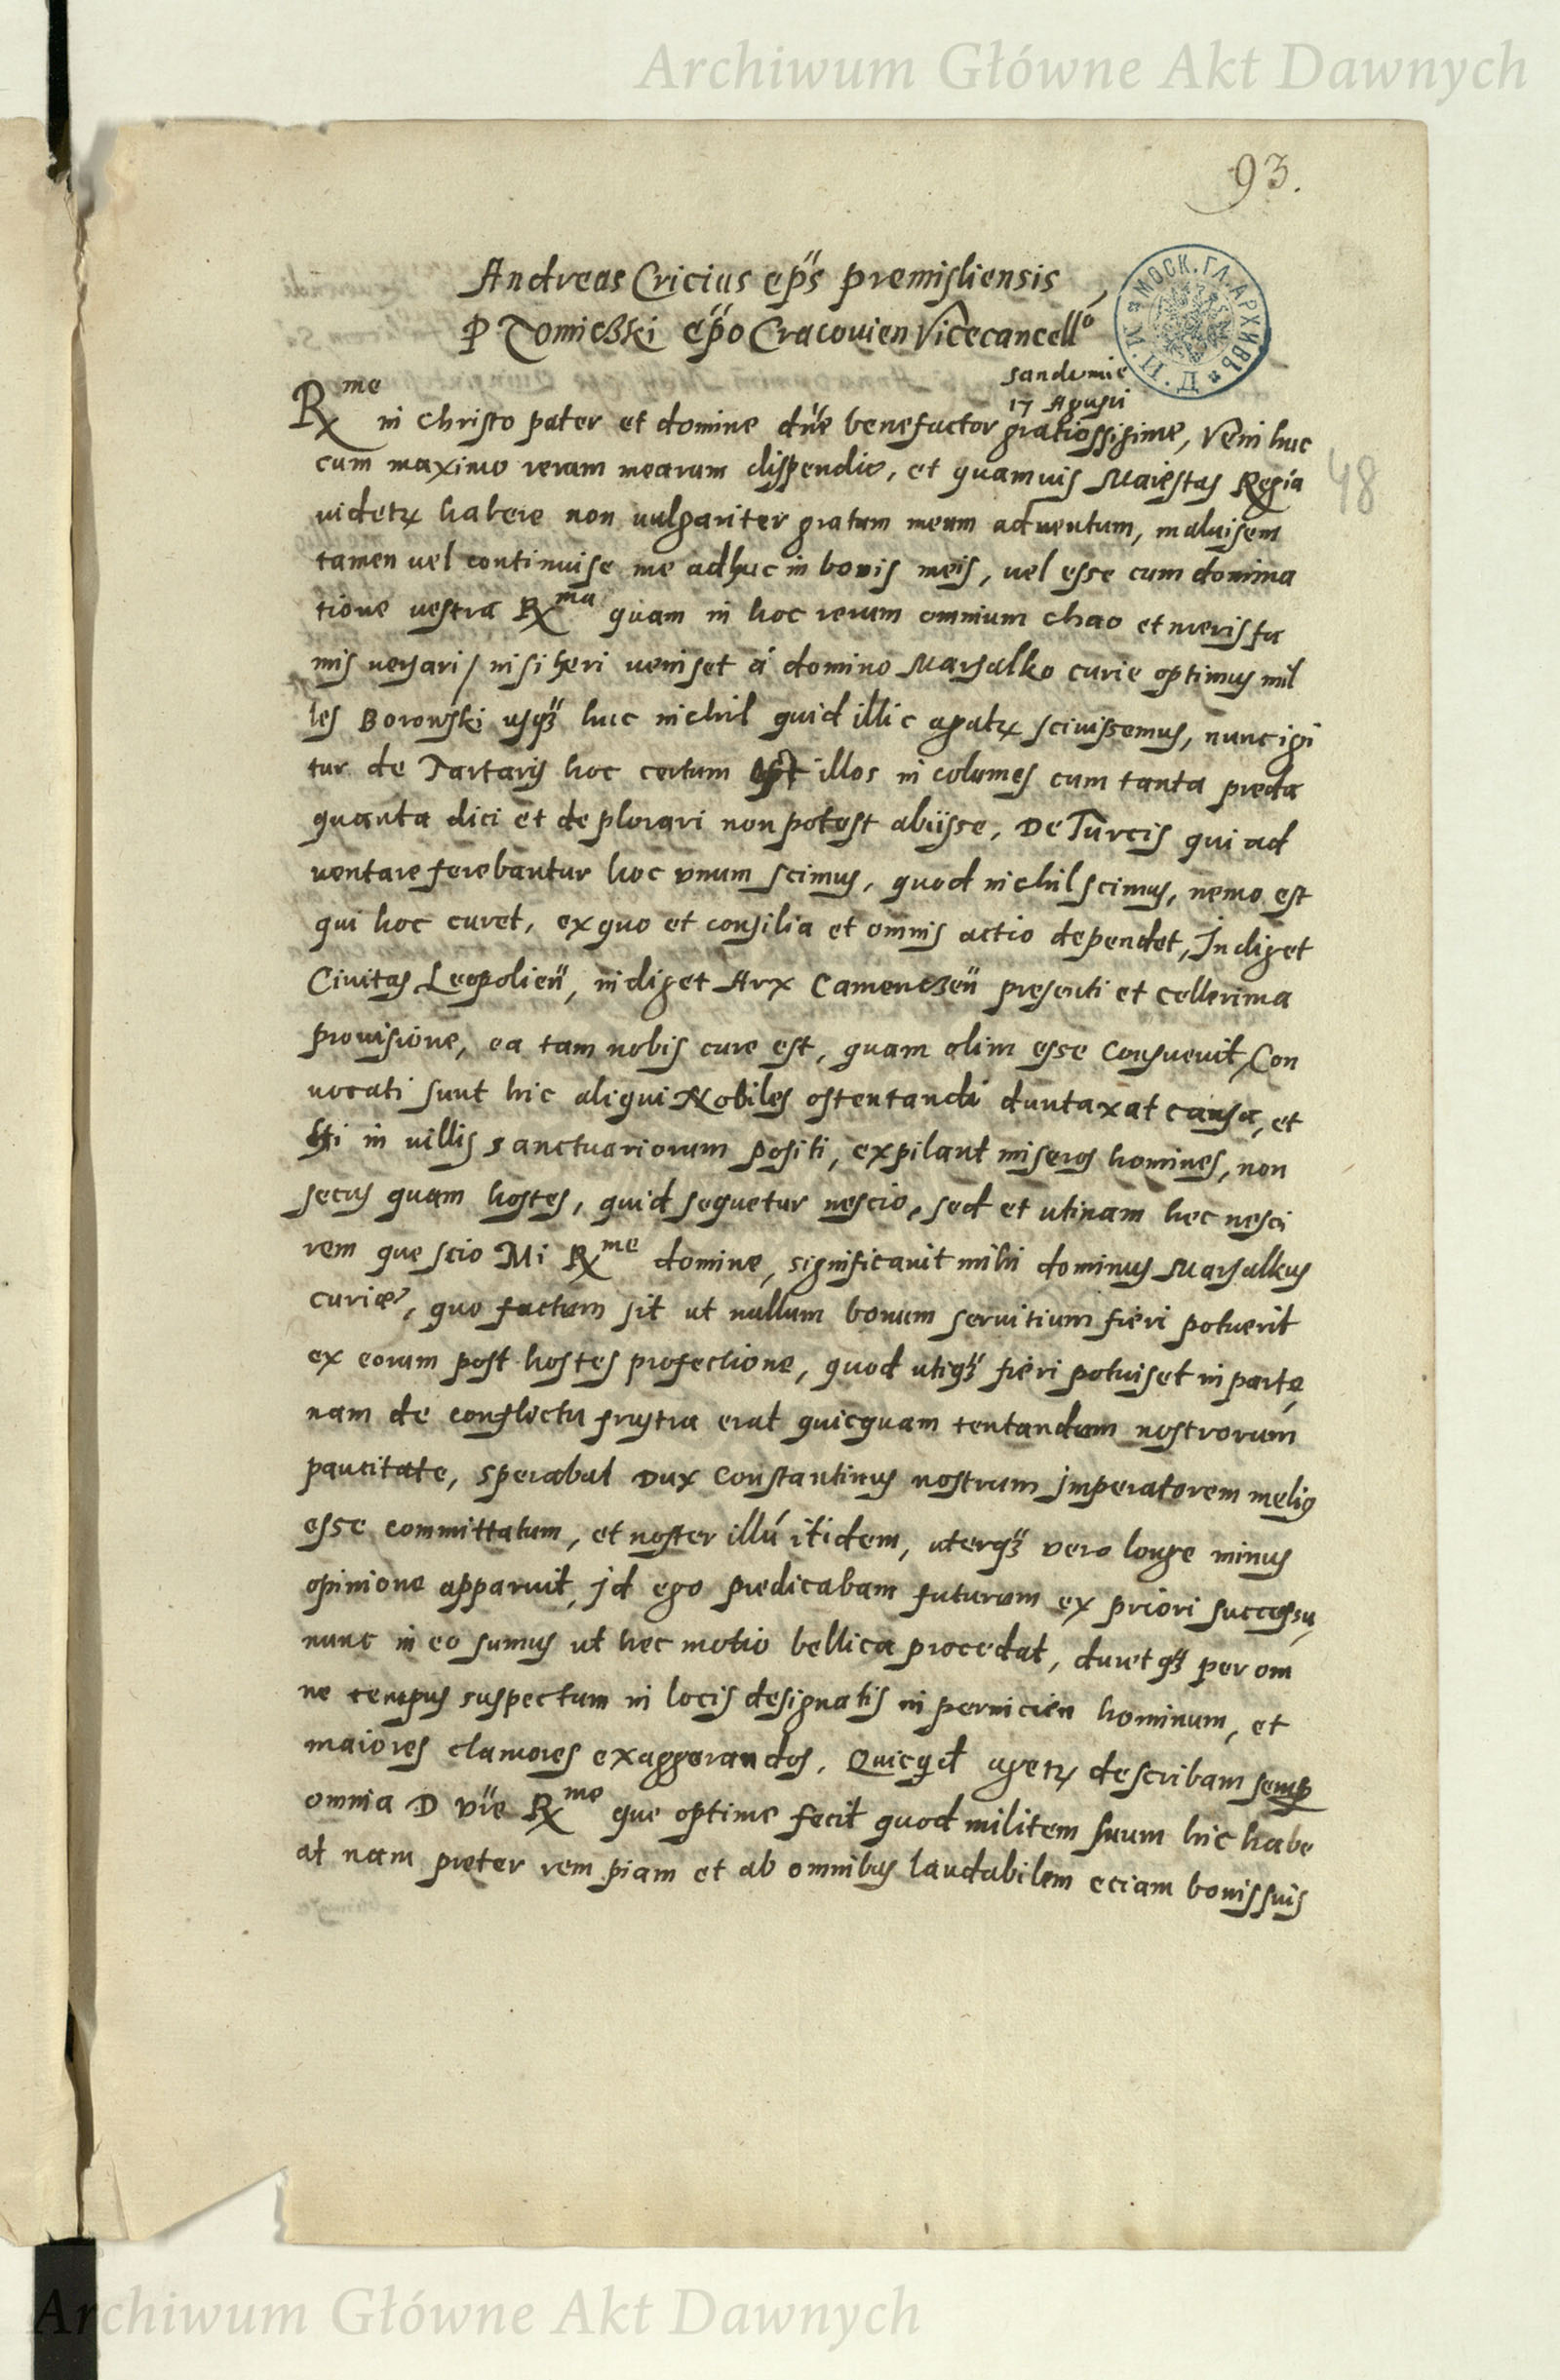 Archiwum Główne Akt Dawnych
93.
Andreas Cricius ep̃s premisliensis
P Tomiczki ep̃o Cracouien Vicecancell°
МОСК. ГЛ. АРХИВЪ
М. И. Д.
Sandomie
17 Agusti
Rme in christo pater et domine dñe benefactor gratiossisime, Veni huc
48
cum maximo rerum mearum dispendio, et quamuis Maiestas Regia
videtr habere non uulgariter gratum meum aduentum, maluisem
tamen uel continuise me adhuc in bonis meis, uel esse cum domina
tione uestra Rma quam in hoc rerum omnium chao et meris fu
mis uersari, nisi heri veniset á domino Marsalko curie optimus mil
les Borowski usqz huc nichil quid illic agatr scivissemus, nunc igi
tur de Tartaris hoc certum est illos in columes cum tanta preda
quanta dici et deplorari non potest abiisse, De Turcis qui ad
uentare ferebantur hoc vnum scimus, quod nichil scimus, nemo est
qui hoc curet, ex quo et consilia et omnis actio dependet, Indiget
Civitas Leopolieñ, indiget Arx Camenczeñ presenti et cellerima
prouisione, ea tam nobis cure est, quam olim esse consueuit, Con
uocati sunt hic aliqui Nobiles ostentandi duntaxat causa, et
hi in villis sanctuariorum positi, expilant miseros homines, non
secus quam hostes, quid sequetur nescio, sed et utinam hec nesci
rem que scio Mi Rme domine, significauit mihi dominus Marsalkus
curiæ, quo factum sit ut nullum bonum seruitium fieri potuerit
ex eorum post hostes profectione, quod utiqz fieri potuiset in parte,
nam de conflictu frustra erat quicquam tentandum nostrorum
paucitate, sperabat Dux Constantinus nostrum Imperatorem melig
esse committatum, et noster illũ itidem, uterqz vero longe minus
opinione apparuit, id ego predicabam futurum ex priori successu,
nunc in eo sumus ut hec motio bellica procedat, duretqz per om
ne tempus suspectum in locis designatis in pernicien hominum, et
maiores clamores exaggerandos. Quicqd agetr describam semp
omnia D vre Rme que optime fecit quod militem suum hic habe
at nam preter rem piam et ab omnibus laudabilem eciam bonis suis
Archiwum Główne Akt Dawnych